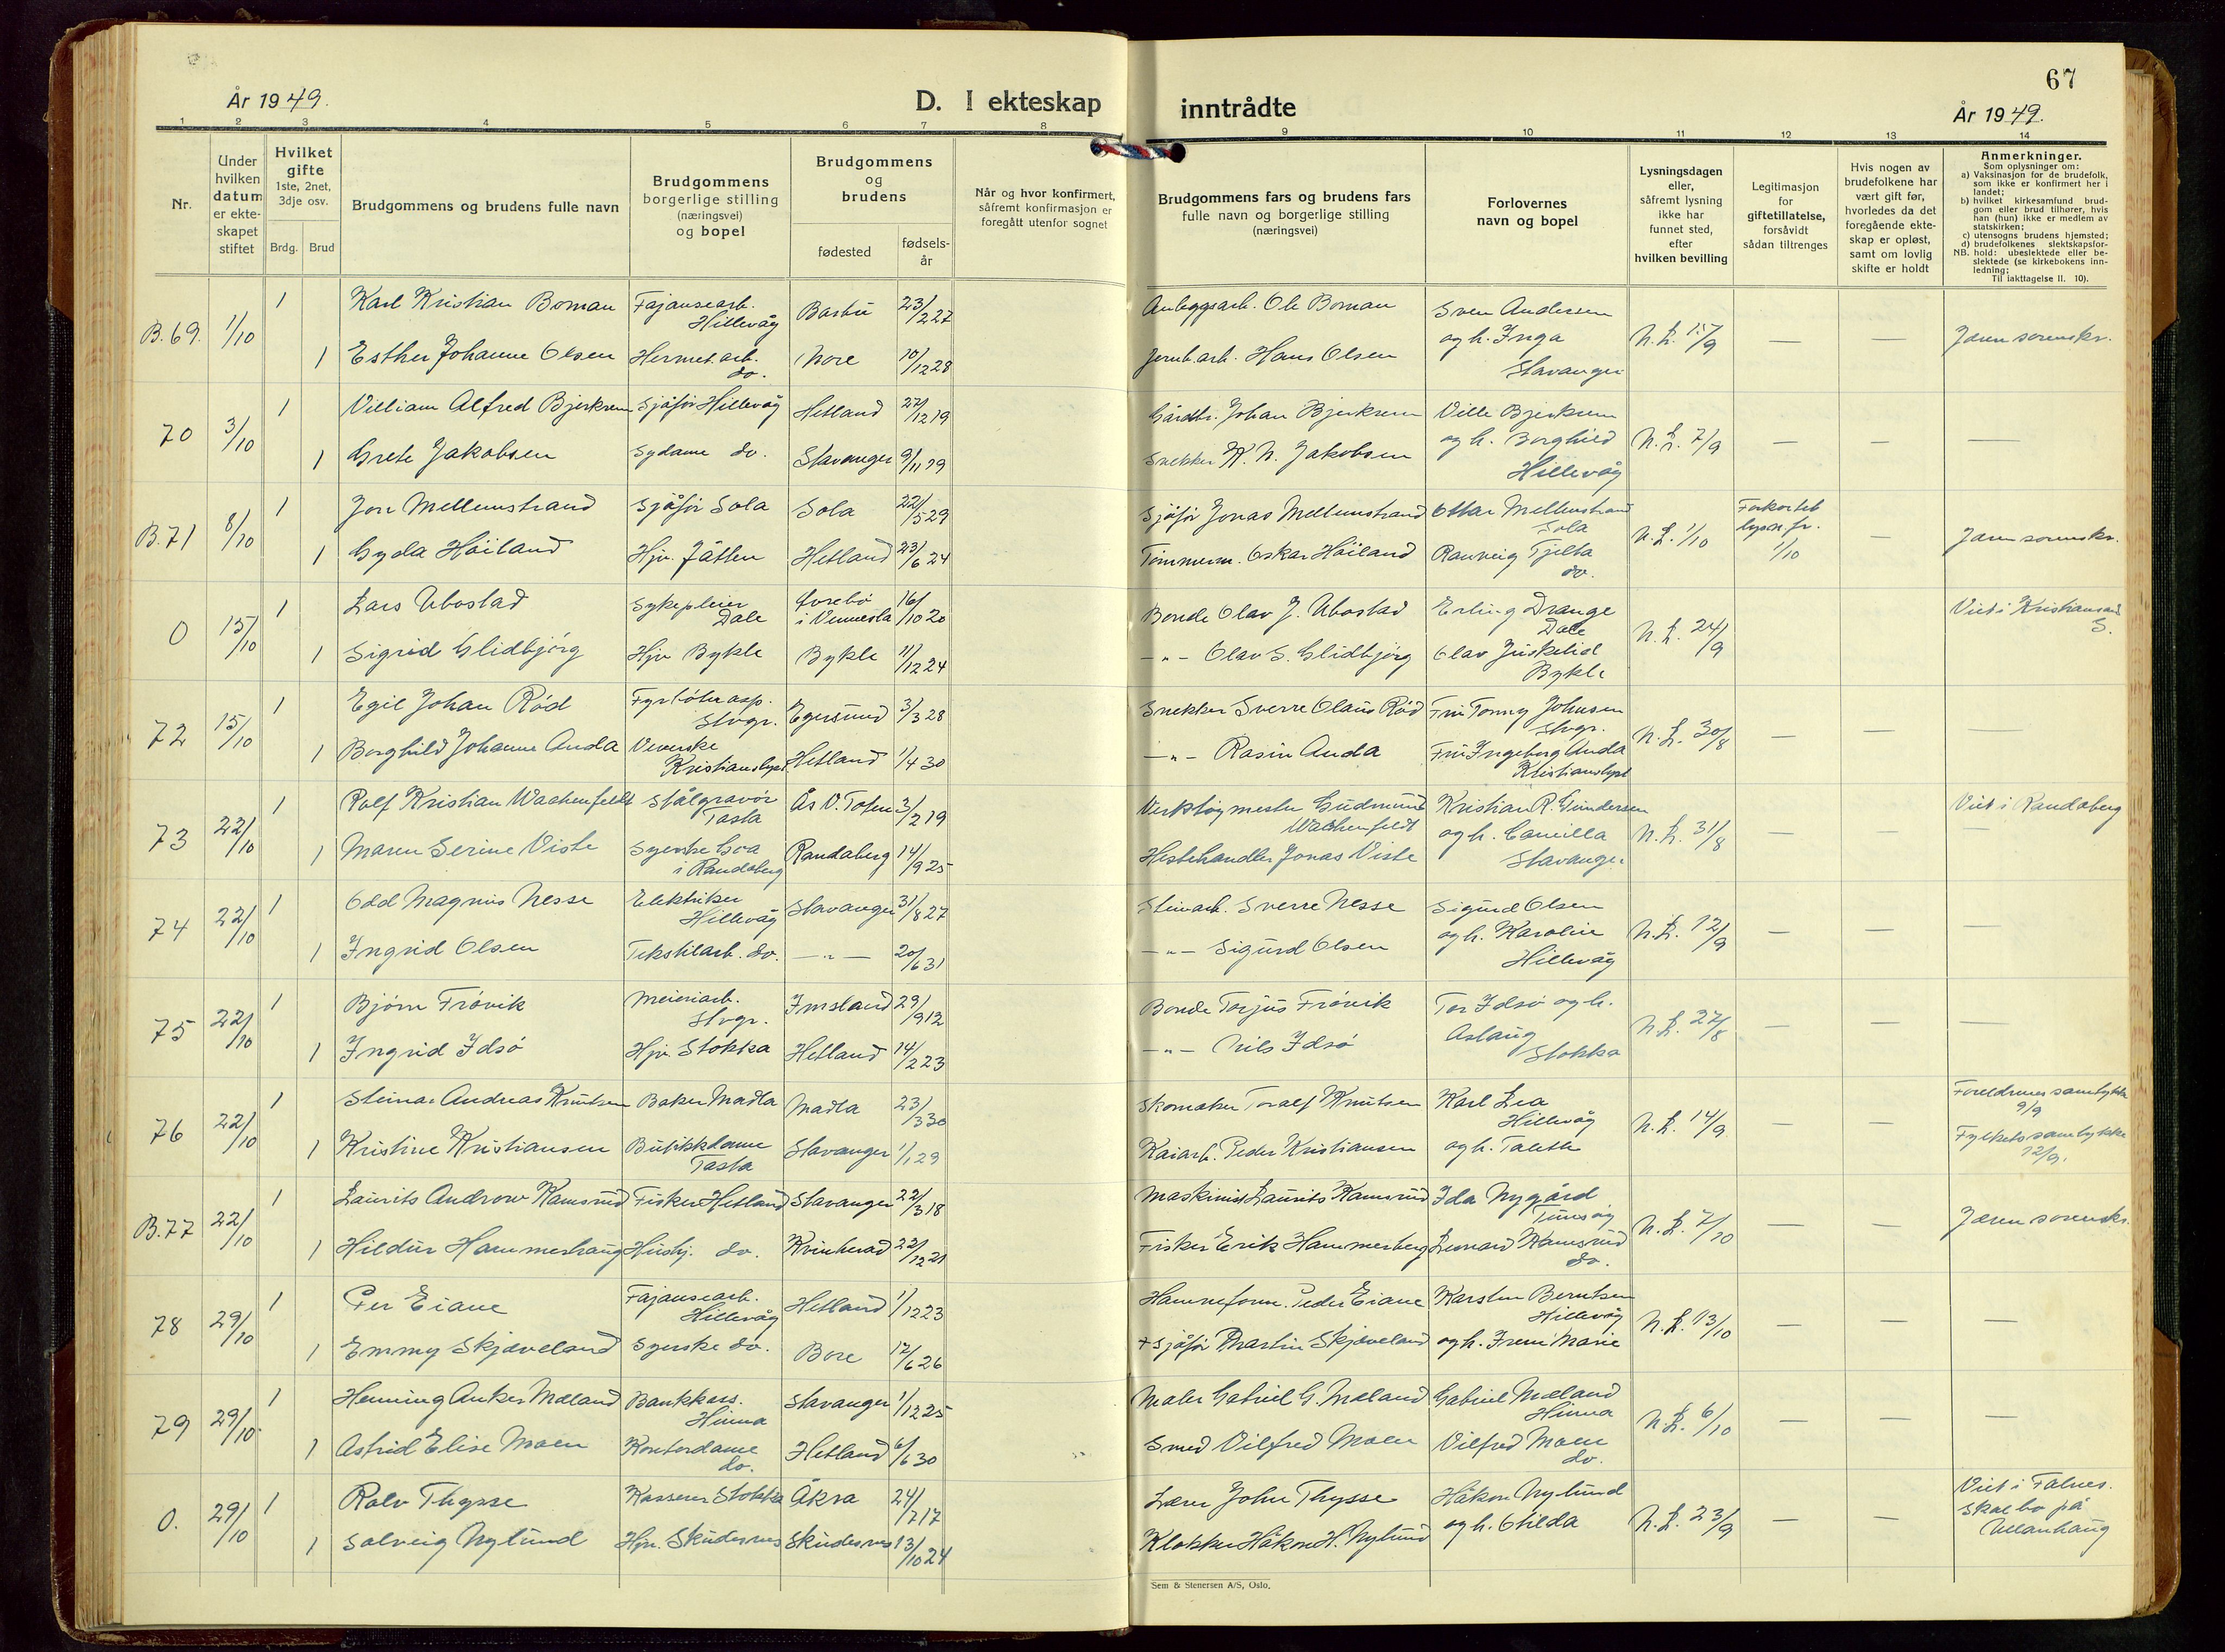 67
År 1949.
D. I ekteskap inntrådte
År 1949.
1 2 3 4 5 6 7 8 9 10 11 12 13 14
Nr.
Under hvilken datum er ekte-skapet stiftet
Hvilket gifte 1ste, 2net, 3dje osv.
Brdg. Brud
Brudgommens og brudens fulle navn
Brudgommens borgerlige stilling (næringsvei) og bopel
Brudgommens og brudens
fødested
fødsels-år
Når og hvor konfirmert, såfremt konfirmasjon er foregått utenfor sognet
Brudgommens fars og brudens fars fulle navn og borgerlige stilling (næringsvei)
Forlovernes navn og bopel
Lysningsdagen eller, såfremt lysning ikke har funnet sted, efter hvilken bevilling
Legitimasjon for giftetillatelse, forsåvidt sådan tiltrenges
Hvis nogen av brudefolkene har vært gift før, hvorledes da det foregående ekte-skap er opløst, samt om lovlig skifte er holdt
Anmerkninger.
Som oplysninger om:
a) Vaksinasjon for de brudefolk, som ikke er konfirmert her i landet;
b) hvilket kirkesamfund brud-gom eller brud tilhører, hvis han (hun) ikke er medlem av statskirken;
c) utensogns brudens hjemsted;
d) brudefolkenes slektskapsfor-hold: ubeslektede eller be-slektede (se kirkebokens inn-ledning;
NB. Til iakttagelse II. 10).
B.69. 1/10 1 Karl Kristian Boman Fajansearb. Hillevåg 23/2 27 Anleggsarb. Ole Boman Sven Andersen og h. Inga Stavanger N.L. 15/9 — — Jæren sorenskr.
1 Esther Johanne Olsen Hermet.arb. do. Nore 10/12 28 Jernb.arb. Hans Olsen
70 3/10 1 Villiam Alfred Bjerkrem Sjåfør Hillevåg Hetland 27/12 19 Gårdbr. Johan Bjerkrem Ville Bjerkrem og h. Borghild Hillevåg N.L. 7/9 — — —
1 Grete Jakobsen Sydame do. Stavanger 9/11 29 Snekker K. N. Jakobsen
B.71 8/10 1 Jon Mellemstrand Sjåfør Sola Sola 22/5 29 Sjåfør Jonas Mellemstrand Ottar Mellemstrand Sola N.L. 1/10 Forkortet lysn. fr. 1/10 — Jæren sorenskr.
1 Gyda Höiland Hjv. Jåtten Hetland 23/6 24 Tømmerm. Oskar Höiland Ranveig Tjelta do.
0 15/10 1 Lars Ubostad Sykepleier Dale i Vennesla 16/10 20 Bonde Olav J. Ubostad Erling Drange Dale N.L. 24/9 Viet i Kristiansand S.
1 Sigrid Glidbjörg Hjv. Bykle Bykle 11/12 24 —"— Olav S. Glidbjörg Olav Bykle
72 15/10 1 Egil Johan Röd Stvgr. Egersund 3/3 28 Snekker Sverre Olaus Röd Fru Tonny Johnsen Stvgr. N.L. 30/8 — — —
1 Borghild Johanne Anda Veverske Kristianslyst Hetland 1/4 30 —"— Rasin Anda Fru Ingeborg Anda Kristianslyst
73 22/10 1 Rolf Kristian Wachenfeldt Stålgravør Tasta Ås V. Toten 3/2 19 Verktøymester Gudmund Wachenfeldt Kristian R. Gundersen og h. Camilla Stavanger N.L. 31/8 — — Viet i Randaberg
1 Maren Serine Viste Syerske Goa i Randaberg Randaberg 14/9 25 Hestehandler Jonas Viste
74 22/10 1 Odd Magnus Nesse Elektriker Hillevåg Stavanger 31/8 27 Steinarb. Sverre Nesse Sigurd Olsen og h. Karoline Hillevåg N.L. 12/9 — — —
1 Ingrid Olsen Tekstilarb. do. —"— 20/6 31 —"— Sigurd Olsen
75 22/10 1 Bjørn Frövik Meieriarb. Stvgr. Imsland 29/9 12 Bonde Torjus Frövik Tor Idsö og h. Aslaug Stokka N.L. 27/8 — — —
1 Ingrid Idsö Hjv. Stokka Hetland 14/2 23 —"— Nils Idsö
76 22/10 1 Steinar Andreas Knutsen Baker Madla Madla 23/3 30 Skomaker Toralf Knutsen Karl Lea Hillevåg og h. Talette N.L. 14/9 — — Foreldrenes samtykke 9/9
1 Kristine Kristiansen Butikkdame Tasta Stavanger 1/1 29 Kaiarb. Peder Kristiansen Fylkets samtykke 12/9.
B.77 22/10 1 Laurits Andrew Ramsrud Fisker Hetland Stavanger 22/3 18 Maskinist Laurits Ramsrud Ida Nygård N.L. 7/10 — — Jæren sorenskr.
1 Hildur Hammerhaug Hushj. do. Kvinherad 22/12 21 Fisker Erik Hammerberg Lennard Ramsrud do.
78 29/10 1 Per Eiane Fajansearb. Hillevåg Hetland 1/12 23 Havneform. Peder Eiane Karsten Berntsen Hillevåg og h. Irene Marie N.L. 13/10 — — —
1 Emmy Skjæveland Syerske do. Bore 12/6 26 + Sjåfør Martin Skjæveland
79 29/10. 1 Henning Anker Mæland Bankkass. Hinna Stavanger 1/12 25 Maler Gabriel G. Mæland Gabriel Mæland Hinna N.L. 6/10 — — —
1 Astrid Elise Moen Kontordame do. Hetland 6/6 30 Smed Vilfred Moen Vilfred Moen do.
0. 29/10 1 Rolv Thysse Kasserer Stokka Åkra 24/7 17 Lærer John Thysse Håkon Nylund og h. Otilda N.L. 23/9 — — Viet i Falnes. Skal bo på Ullanhaug
1 Solveig Nylund Hjv. Skudesnes Skudesnes 13/10 24 Klokker Håkon H. Nylund
Sem & Stenersen A/S, Oslo.